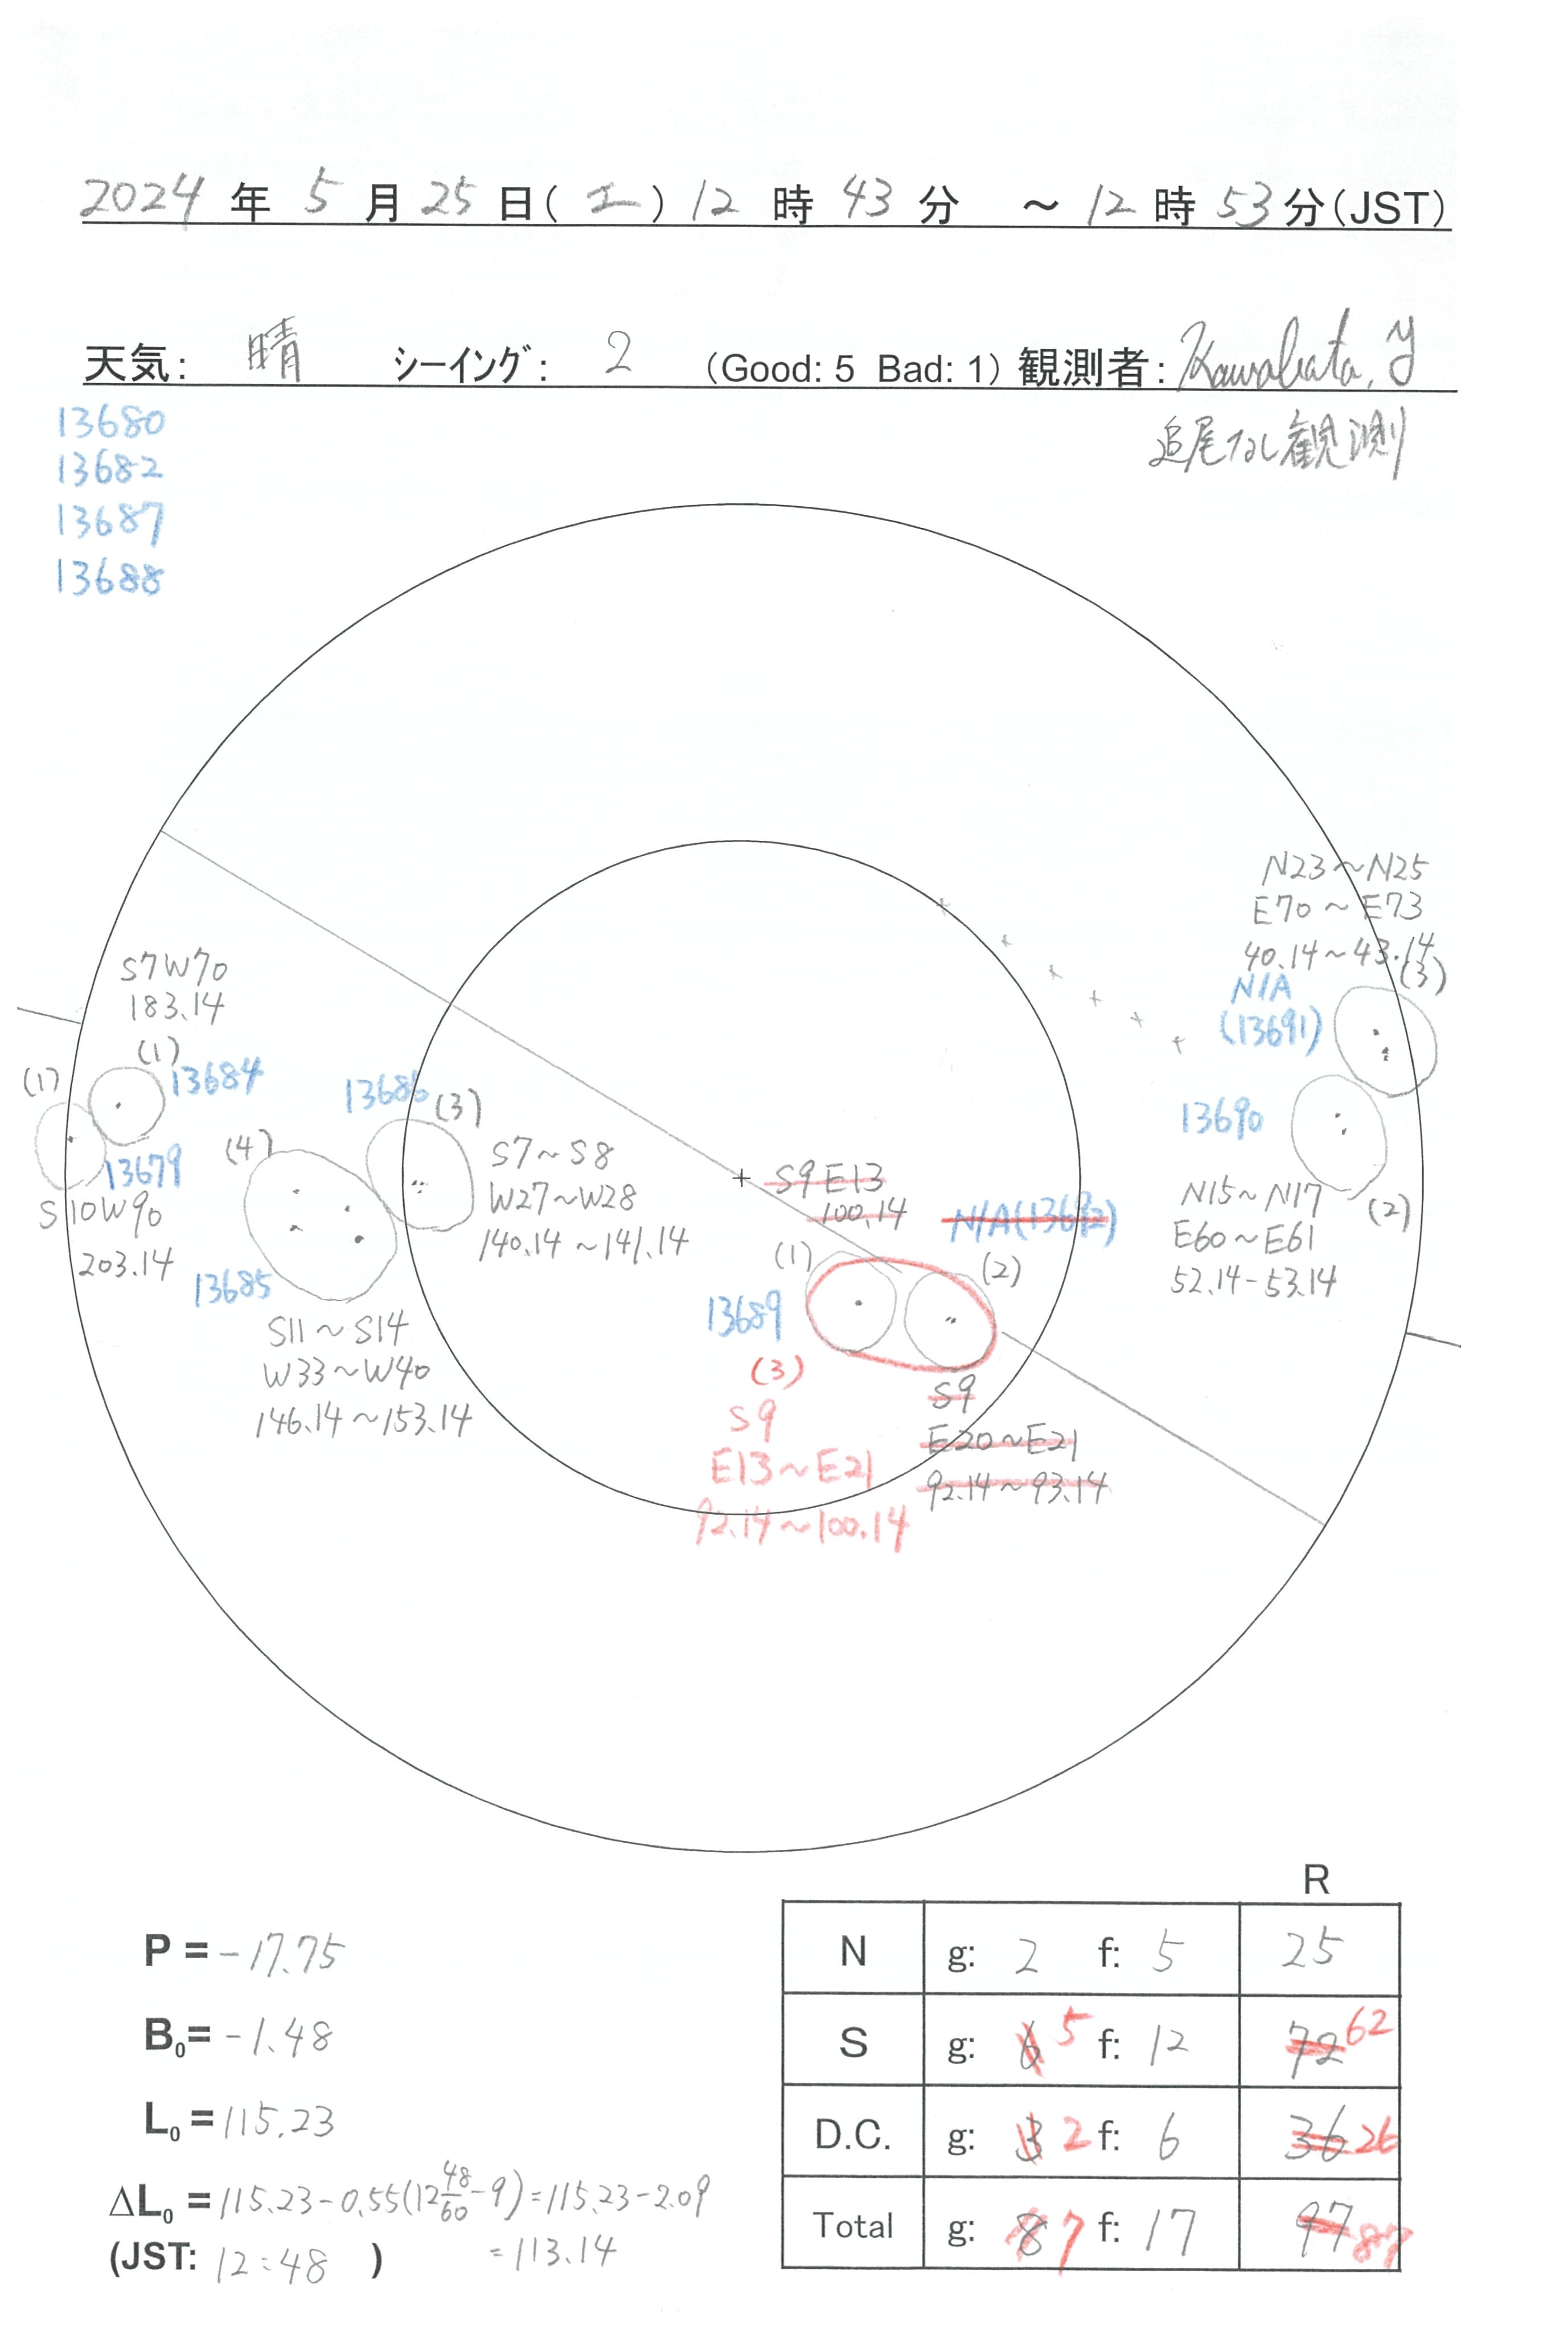 2024 年 5 月 25 日(土) 12 時 43 分 ～ 12 時 53 分(JST)
天気: 晴 シーイング: 2 (Good: 5 Bad: 1) 観測者: Kawabata, Y
追尾なし観測
13680
13682
13687
13688
N23～N25
E70～E73
40.14～43.14
(3)
N/A
(13691)
S7W70
183.14
(1)
13684
(1)
13679
S10W90
203.14
13686
(3)
S7～S8
W27～W28
140.14～141.14
(4)
13685
S11～S14
W33～W40
146.14～153.14
13690
(2)
N15～N17
E60～E61
52.14-53.14
S9 E13
100.14
N/A(13692)
(1)
(2)
13689
(3)
S9
E13～E21
92.14～100.14
S9
E20～E21
92.14～93.14
P = -17.75
B₀= -1.48
L₀ = 115.23
ΔL₀ = 115.23-0.55(12 48/60 -9)=115.23-2.09
(JST: 12:48 ) =113.14
R
N g: 2 f: 5 25
S g: 6 5 f: 12 72 62
D.C. g: 3 2 f: 6 36 26
Total g: 8 7 f: 17 97 87